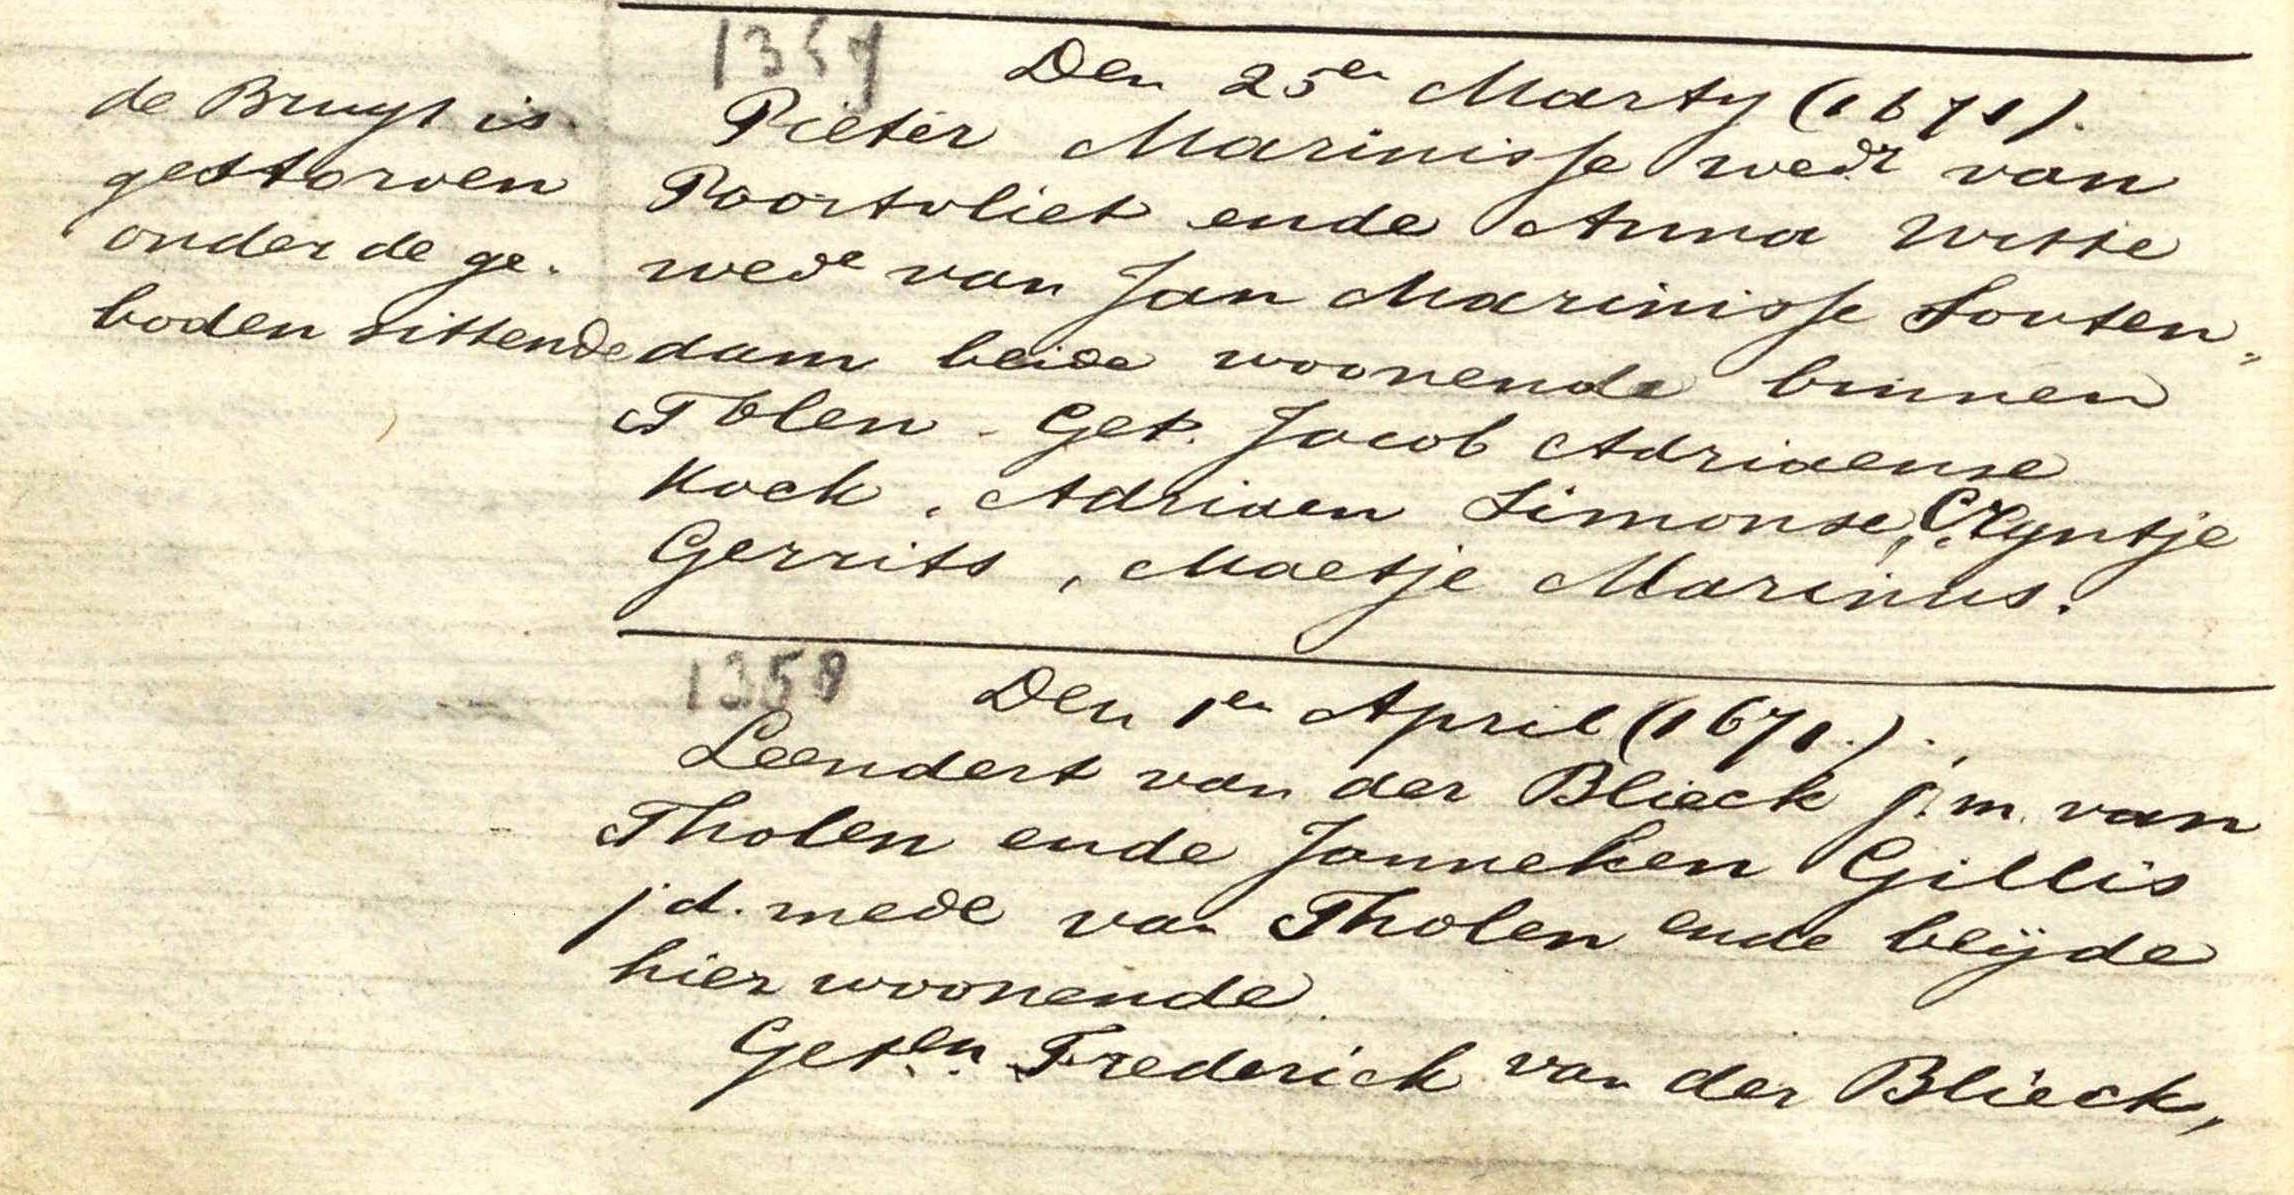 1357
Den 25en Marty (1671).
Pieter Marinisse wedr van
Poortvliet ende Anna Witte
wede van Jan Marinisse Souten„
dam beide woonende binnen
Tolen. Get. Jacob Adriaense
Kock, Adriaen Simonse, Cryntje
Gerrits, Maetje Marinus.
de Bruyt is
gestorven
onder de ge.
boden sittende
1358
Den 1en April (1671.).
Leendert van der Blieck j.m. van
Tholen ende Janneken Gillis
j d. mede van Tholen ende beijde
hier woonende.
Geten. Frederick van der Blieck,